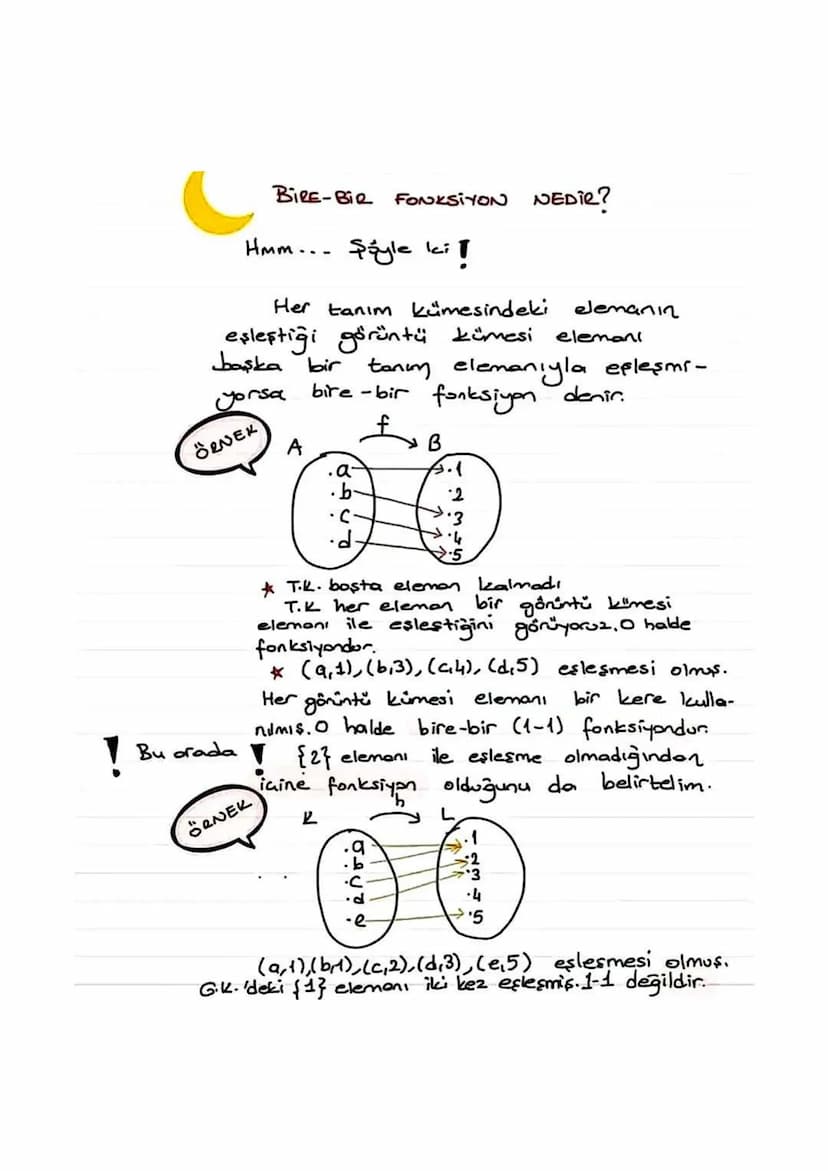 BİRE-BİR FONKSİYON NEDİR?
Hmm... Şöyle ki!
Her tanım kümesindeki elemanın
eşleştiği görüntü kümesi elemanı
başka bir tanım elemanıyla eşleşmi-
yorsa bire-bir fonksiyon denir.
ÖRNEK
A f B
.a .1
.b .2
.c .3
.d .4
.5
* T.K. boşta eleman kalmadı
T.K her eleman bir görüntü kümesi
elemanı ile eşleştiğini görüyoruz. O halde
fonksiyondur.
* (a,1),(b,3),(c,4),(d,5) eşleşmesi olmuş.
Her görüntü kümesi elemanı bir kere kulla-
nılmış. O halde bire-bir (1-1) fonksiyondur.
! Bu arada ! {2} elemanı ile eşleşme olmadığından
içine fonksiyon olduğunu da belirtelim.
ÖRNEK
K h L
.a .1
.b .2
.c .3
.d .4
.e .5
(a,1),(b,1),(c,2),(d,3),(e,5) eşleşmesi olmuş.
G.K.'deki {1} elemanı iki kez eşleşmiş. 1-1 değildir.